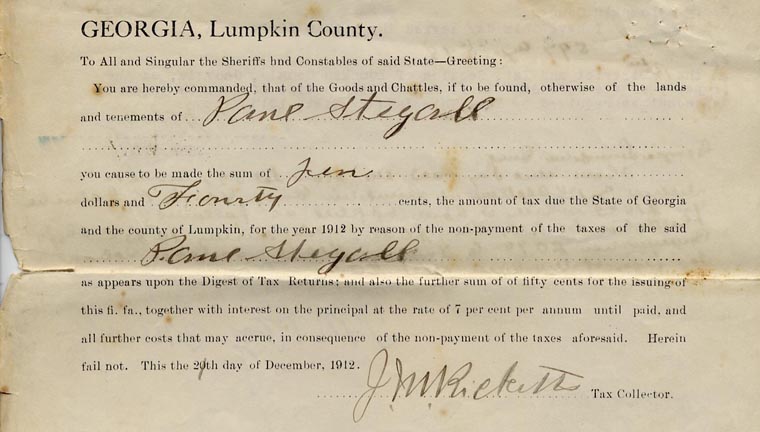 GEORGIA, Lumpkin County.
To All and Singular the Sheriffs hnd Constables of said State—Greeting:
You are hereby commanded, that of the Goods and Chattles, if to be found, otherwise of the lands
and tenements of Stegall
you cause to be made the sum of Ten
dollars and Fourty cents, the amount of tax due the State of Georgia
and the county of Lumpkin, for the year 1912 by reason of the non-payment of the taxes of the said
Stegall
as appears upon the Digest of Tax Returns; and also the further sum of of fifty cents for the issuing of
this fi. fa., together with interest on the principal at the rate of 7 per cent per annum until paid, and
all further costs that may accrue, in consequence of the non-payment of the taxes aforesaid. Herein
fail not. This the day of December, 1912.
J. M. Ricketts Tax Collector.